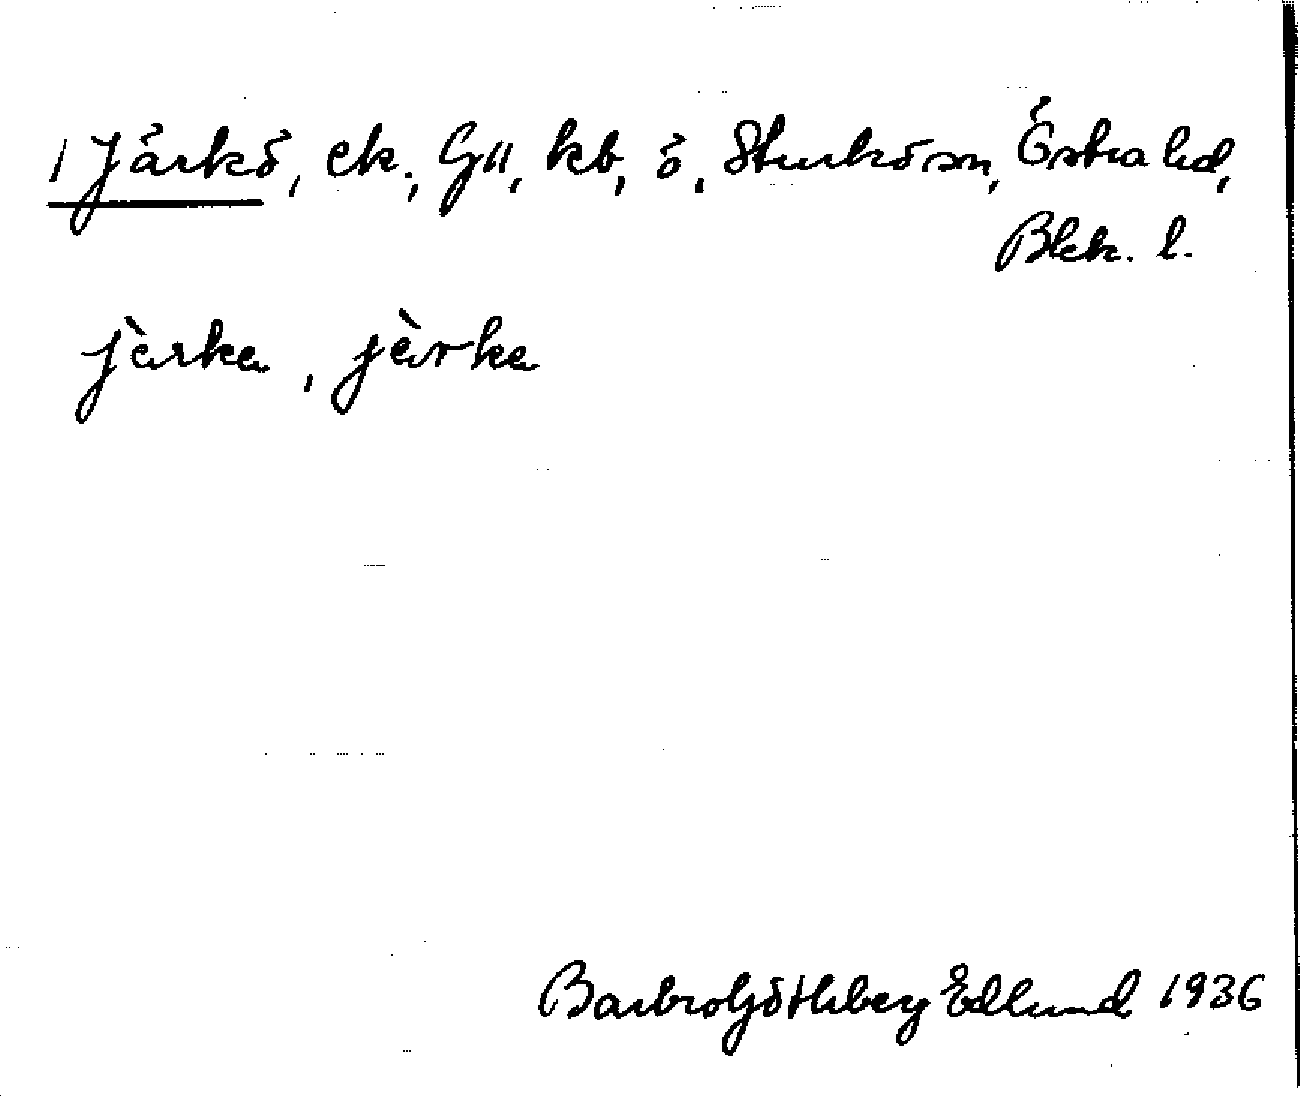 1 Järkö, ek., Gä, kb, ö, Sturkö sn, Östra hd,
Blek. l.
jèrka, jèrka
Barbro Götlberg Edlund 1936